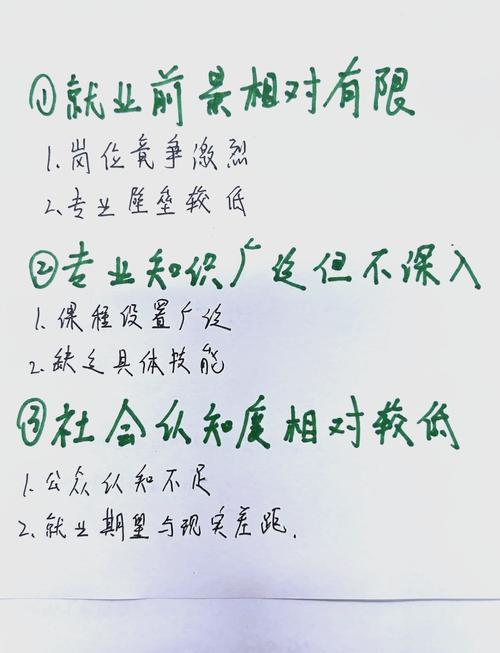 ①就业前景相对有限
1.岗位竞争激烈
2.专业壁垒较低
②专业知识广泛但不深入
1.课程设置广泛
2.缺乏具体技能
③社会认知度相对较低
1.公众认知不足
2.就业期望与现实差距.